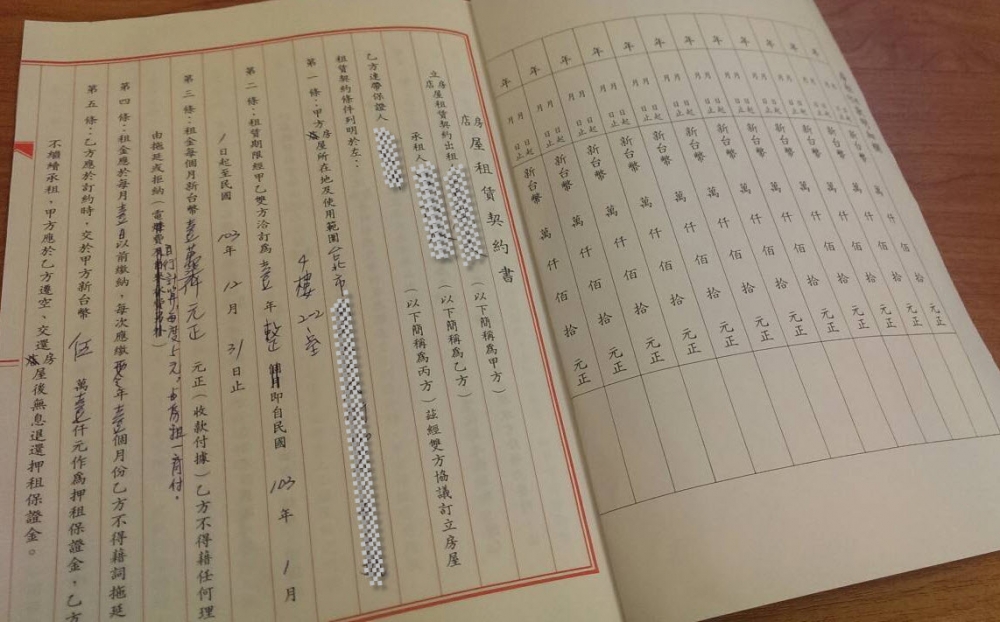 年 月 日起 月 日止 新台幣 萬 仟 佰 拾 元正
年 月 日起 月 日止 新台幣 萬 仟 佰 拾 元正
年 月 日起 月 日止 新台幣 萬 仟 佰 拾 元正
年 月 日起 月 日止 新台幣 萬 仟 佰 拾 元正
年 月 日起 月 日止 新台幣 萬 仟 佰 拾 元正
年 月 日起 月 日止 新台幣 萬 仟 佰 拾 元正
年 月 日起 月 日止 新台幣 萬 仟 佰 拾 元正
年 月 日起 月 日止 新台幣 萬 仟 佰 拾 元正
年 月 日起 月 日止 新台幣 萬 仟 佰 拾 元正
年 月 日起 月 日止 新台幣 萬 仟 佰 拾 元正
年 月 日起 月 日止 新台幣 萬 仟 佰 拾 元正
房店屋租賃契約書
立房店屋租賃契約出租人（以下簡稱為甲方）
承租人（以下簡稱為乙方）茲經雙方協議訂立房屋
乙方連帶保證人（以下簡稱為丙方）
租賃契約條件列明於左：
第一條：甲方房屋所在地及使用範圍台北市
4樓 202室
第二條：租賃期限經甲乙雙方洽訂為壹年整即自民國103年1月
1日起至民國103年12月31日止
第三條：租金每個月新台幣元正 元正（收款付據）乙方不得藉任何理
由拖延或拒納（電費自行計算,每度5元，與房租一齊付。）
第四條：租金應於每月壹日以前繳納，每次應繳年壹個月份乙方不得藉詞拖延
第五條：乙方應於訂約時，交於甲方新台幣伍萬壹仟元作為押租保證金，乙方
不繼續承租，甲方應於乙方遷空、交還房屋後無息退還押租保證金。